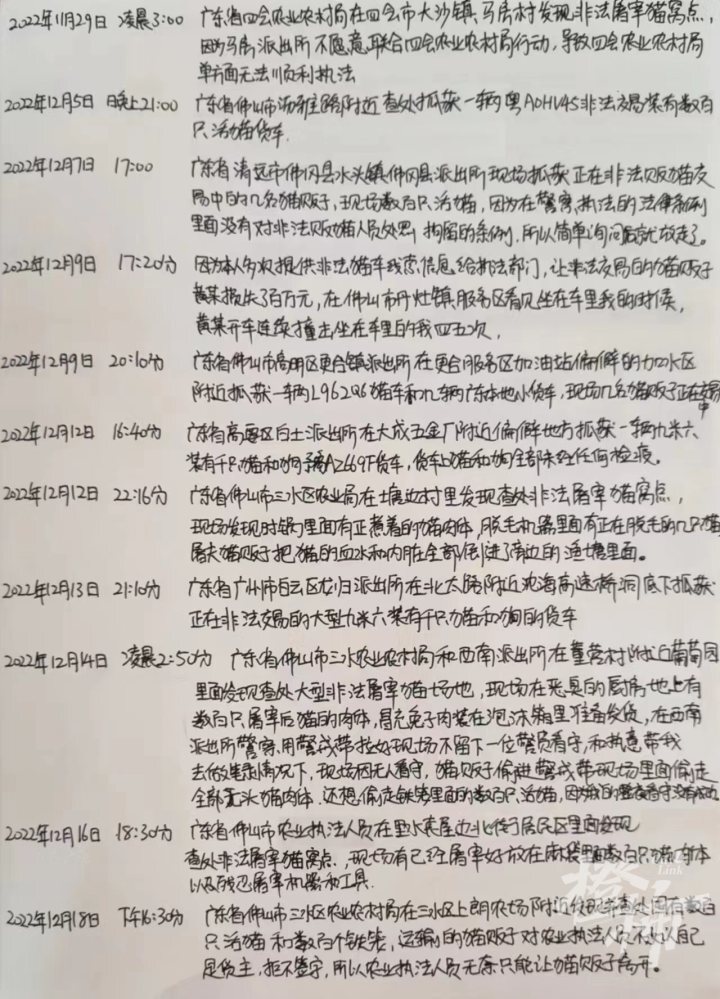 2022年11月29日 凌晨3:00 广东省四会农业农村局在四会市大沙镇马房村发现非法屠宰猫窝点，
因为马房派出所不愿意联合四会农业农村局行动，导致四会农业农村局
单方面无法顺利执法
2022年12月5日 晚上21:00 广东省佛山市 路附近查处抓获一辆粤A0HV45非法交易装有数百
只活猫货车.
2022年12月7日 17:00 广东省清远市佛冈县水头镇佛冈县派出所现场抓获正在非法贩猫交
易中的几名猫贩子，现场数百只活猫，因为在警察执法的法律条例
里面没有对非法贩猫人员处罚拘留的条例，所以简单询问后就放走了。
2022年12月9日 17:20分 因为本人多次提供非法猫车线索信息给执法部门，让非法交易的猫贩子
黄某损失了百万元，在佛山市丹灶镇服务区看见坐在车里我的时候，
黄某开车连续撞击坐在车里的我四五次，
2022年12月9日 20:10分 广东省佛山市高明区更合镇派出所在更合服务区加油站偏僻的加水区
附近抓获一辆L962Q6猫车和几辆广东本地小货车，现场几名猫贩子正在交易
中
2022年12月12日 16:40分 广东省高要区白土派出所在大成五金厂附近偏僻地方抓获一辆九米六
装有千只猫和狗 AZ669F货车，货车上猫和狗全部未经任何检疫。
2022年12月12日 22:16分 广东省佛山市三水区农业局在塘边村里发现查处非法屠宰猫窝点，
现场发现时锅里面有正煮着的猫肉体，脱毛机器里面有正在脱毛的几只猫
屠夫猫贩子把猫的血水和内脏全部倒进了旁边的渔塘里面。
2022年12月13日 21:10分 广东省广州市白云区龙归派出所在北太路附近沈海高速桥洞底下抓获
正在非法交易的大型九米六装有千只猫和狗的货车
2022年12月14日 凌晨2:50分 广东省佛山市三水农业农村局和西南派出所在董营村附近葡萄园
里面发现查处大型非法屠宰猫场地，现场在恶臭的厨房地上有
数百只屠宰后猫的肉体，冒充兔子肉装在泡沫箱里准备发货，在西南
派出所警察用警戒带拉好现场不留下一位警员看守，和执意带我
去做笔录情况下，现场因无人看守，猫贩子偷进警戒带现场里面偷走
全部无头猫肉体. 还想偷走铁笼里面的数百只活猫，因为我的 看守没有成功
2022年12月16日 18:30分 广东省佛山市农业执法人员在里水 边北 居民区里面发现
查处非法屠宰猫窝点，现场有已经屠宰好放在麻袋里面数百只猫肉体
以及残忍屠宰机器和工具.
2022年12月18日 下午16:30分 广东省佛山市三水区农业农村局在三水区上朗农场附近发现并查处固有数百
只活猫和数百个铁笼，运输的猫贩子对农业执法人员不承认自己
是货主，拒不签字，所以农业执法人员无奈只能让猫贩子离开。
橙柿
Link